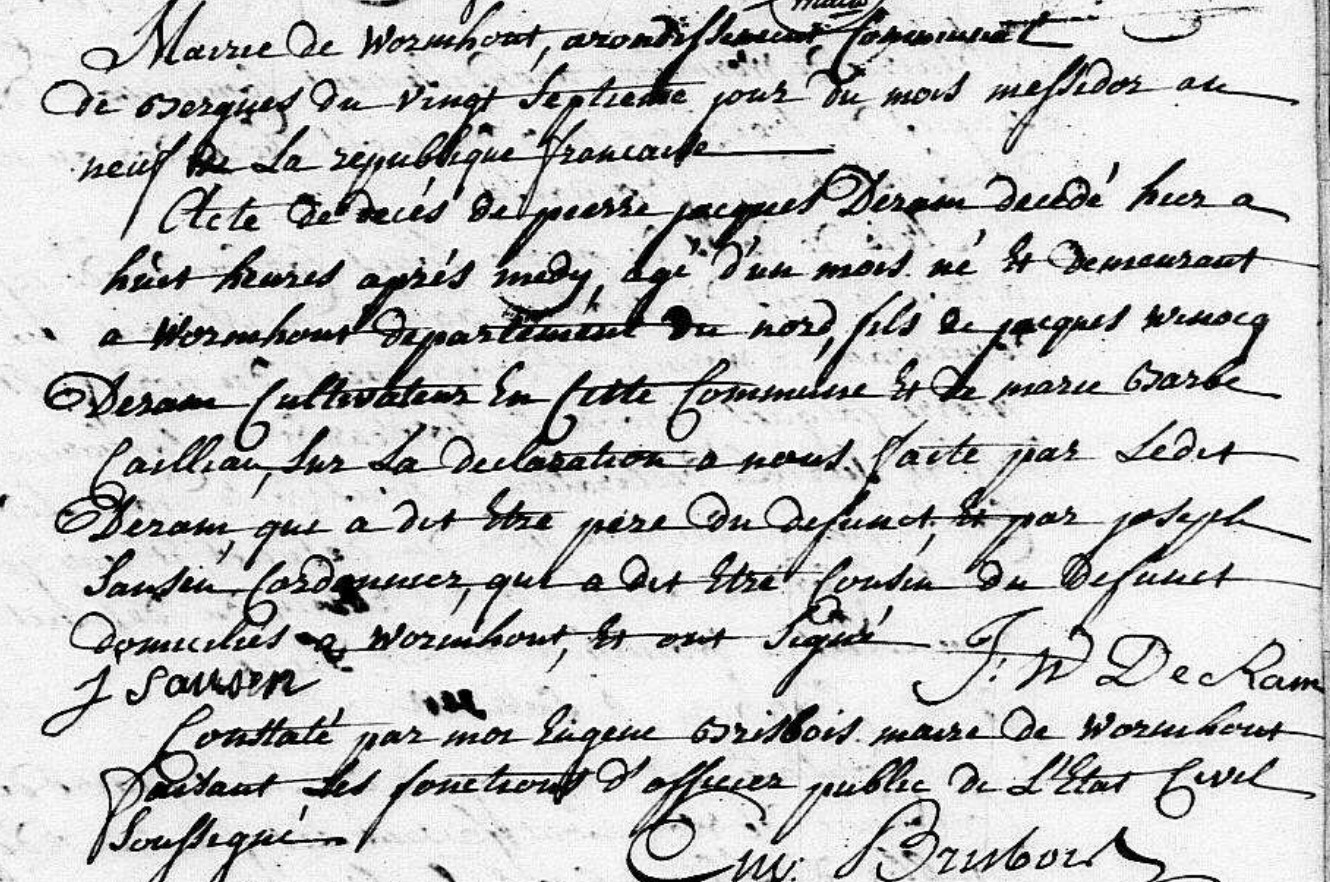 Mairie de Wormhout, arondissement Communal
de Bergues du vingt Septieme jour du mois messidor an
neuf de La republique francaise
Acte de decés de pierre jacques Deram decedé hier a
huit heures aprés midy, agé d'un mois né Et demeurant
a Wormhout departement du nord, fils de jacques winocq
Deram Cultivateur En Cette Commune Et de marie Barbe
Cailliau, Sur La declaration a nous faite par Ledit
Deram, qui a dit Etre pere du defunct, Et par joseph
Sansen Cordonnier, qui a dit Etre Cousin du Defunct
domiciliés a Wormhout, Et ont Signé J: W DeRam
J Sansen
Constaté par moi Eugene Brisbois maire de Wormhout
faisant Les fonctions d'officier public de L'Etat Civil
Soussigné
Eug. Brisbois